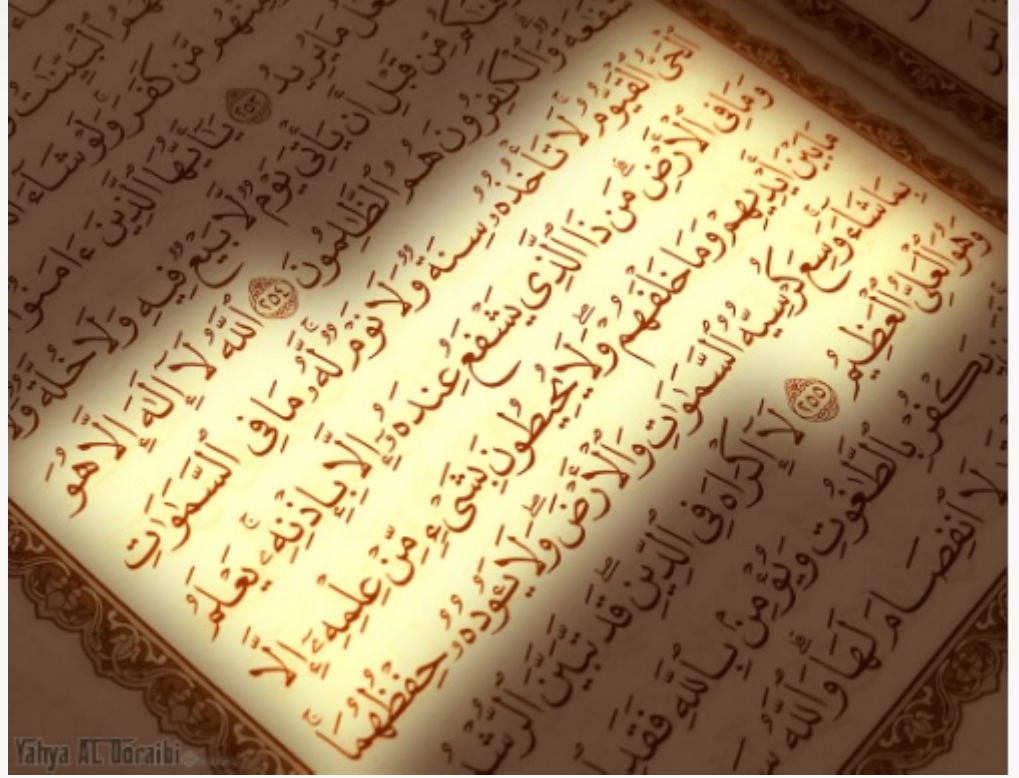 الْبَيِّنَتِ
مِنْهُم مَّن كَفَرَ وَلَوْ شَآءَ
يَفْعَلُ مَا يُرِيدُ ٢٥٣ يَٰٓأَيُّهَا ٱلَّذِينَ ءَامَنُوٓا۟
مِّن قَبْلِ أَن يَأْتِىَ يَوْمٌ لَّا بَيْعٌ فِيهِ وَلَا خُلَّةٌ وَلَا
شَفَٰعَةٌ وَٱلْكَٰفِرُونَ هُمُ ٱلظَّٰلِمُونَ ٢٥٤ ٱللَّهُ لَآ إِلَٰهَ إِلَّا هُوَ
ٱلْحَىُّ ٱلْقَيُّومُ لَا تَأْخُذُهُۥ سِنَةٌ وَلَا نَوْمٌ لَّهُۥ مَا فِى ٱلسَّمَٰوَٰتِ
وَمَا فِى ٱلْأَرْضِ مَن ذَا ٱلَّذِى يَشْفَعُ عِندَهُۥٓ إِلَّا بِإِذْنِهِۦ يَعْلَمُ
مَا بَيْنَ أَيْدِيهِمْ وَمَا خَلْفَهُمْ وَلَا يُحِيطُونَ بِشَىْءٍ مِّنْ عِلْمِهِۦٓ إِلَّا
بِمَا شَآءَ وَسِعَ كُرْسِيُّهُ ٱلسَّمَٰوَٰتِ وَٱلْأَرْضَ وَلَا يَـُٔودُهُۥ حِفْظُهُمَا
وَهُوَ ٱلْعَلِىُّ ٱلْعَظِيمُ ٢٥٥ لَآ إِكْرَاهَ فِى ٱلدِّينِ قَد تَّبَيَّنَ ٱلرُّشْدُ
يَكْفُرْ بِٱلطَّٰغُوتِ وَيُؤْمِنۢ بِٱللَّهِ فَقَدِ
لَا ٱنفِصَامَ لَهَا وَٱللَّهُ
Yahya AL Doraibi